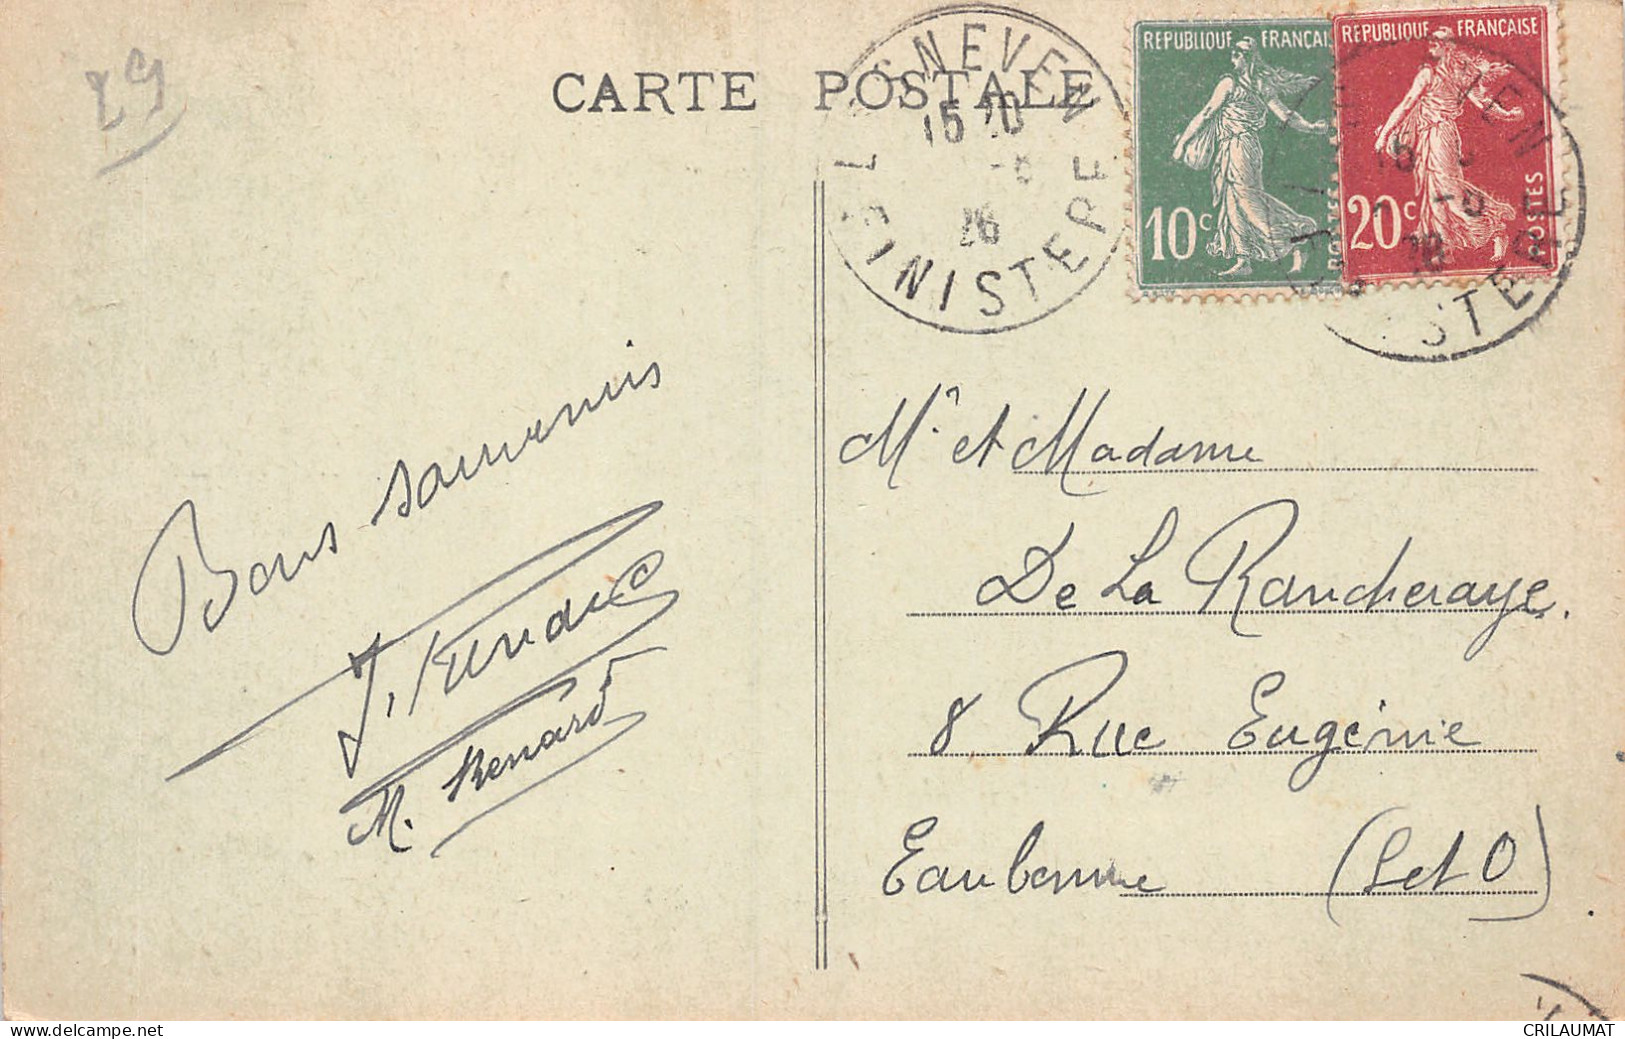 29
CARTE POSTALE
LESNEVEN
15 20
-8
26
FINISTERE
REPUBLIQUE FRANÇAISE
10c
POSTES
REPUBLIQUE FRANÇAISE
20c
POSTES
Bons souvenirs
M. Renard
Mr et Madame
De La Rancheraye.
8 Rue Eugénie
Eaubonne (S et O)
CRILAUMAT